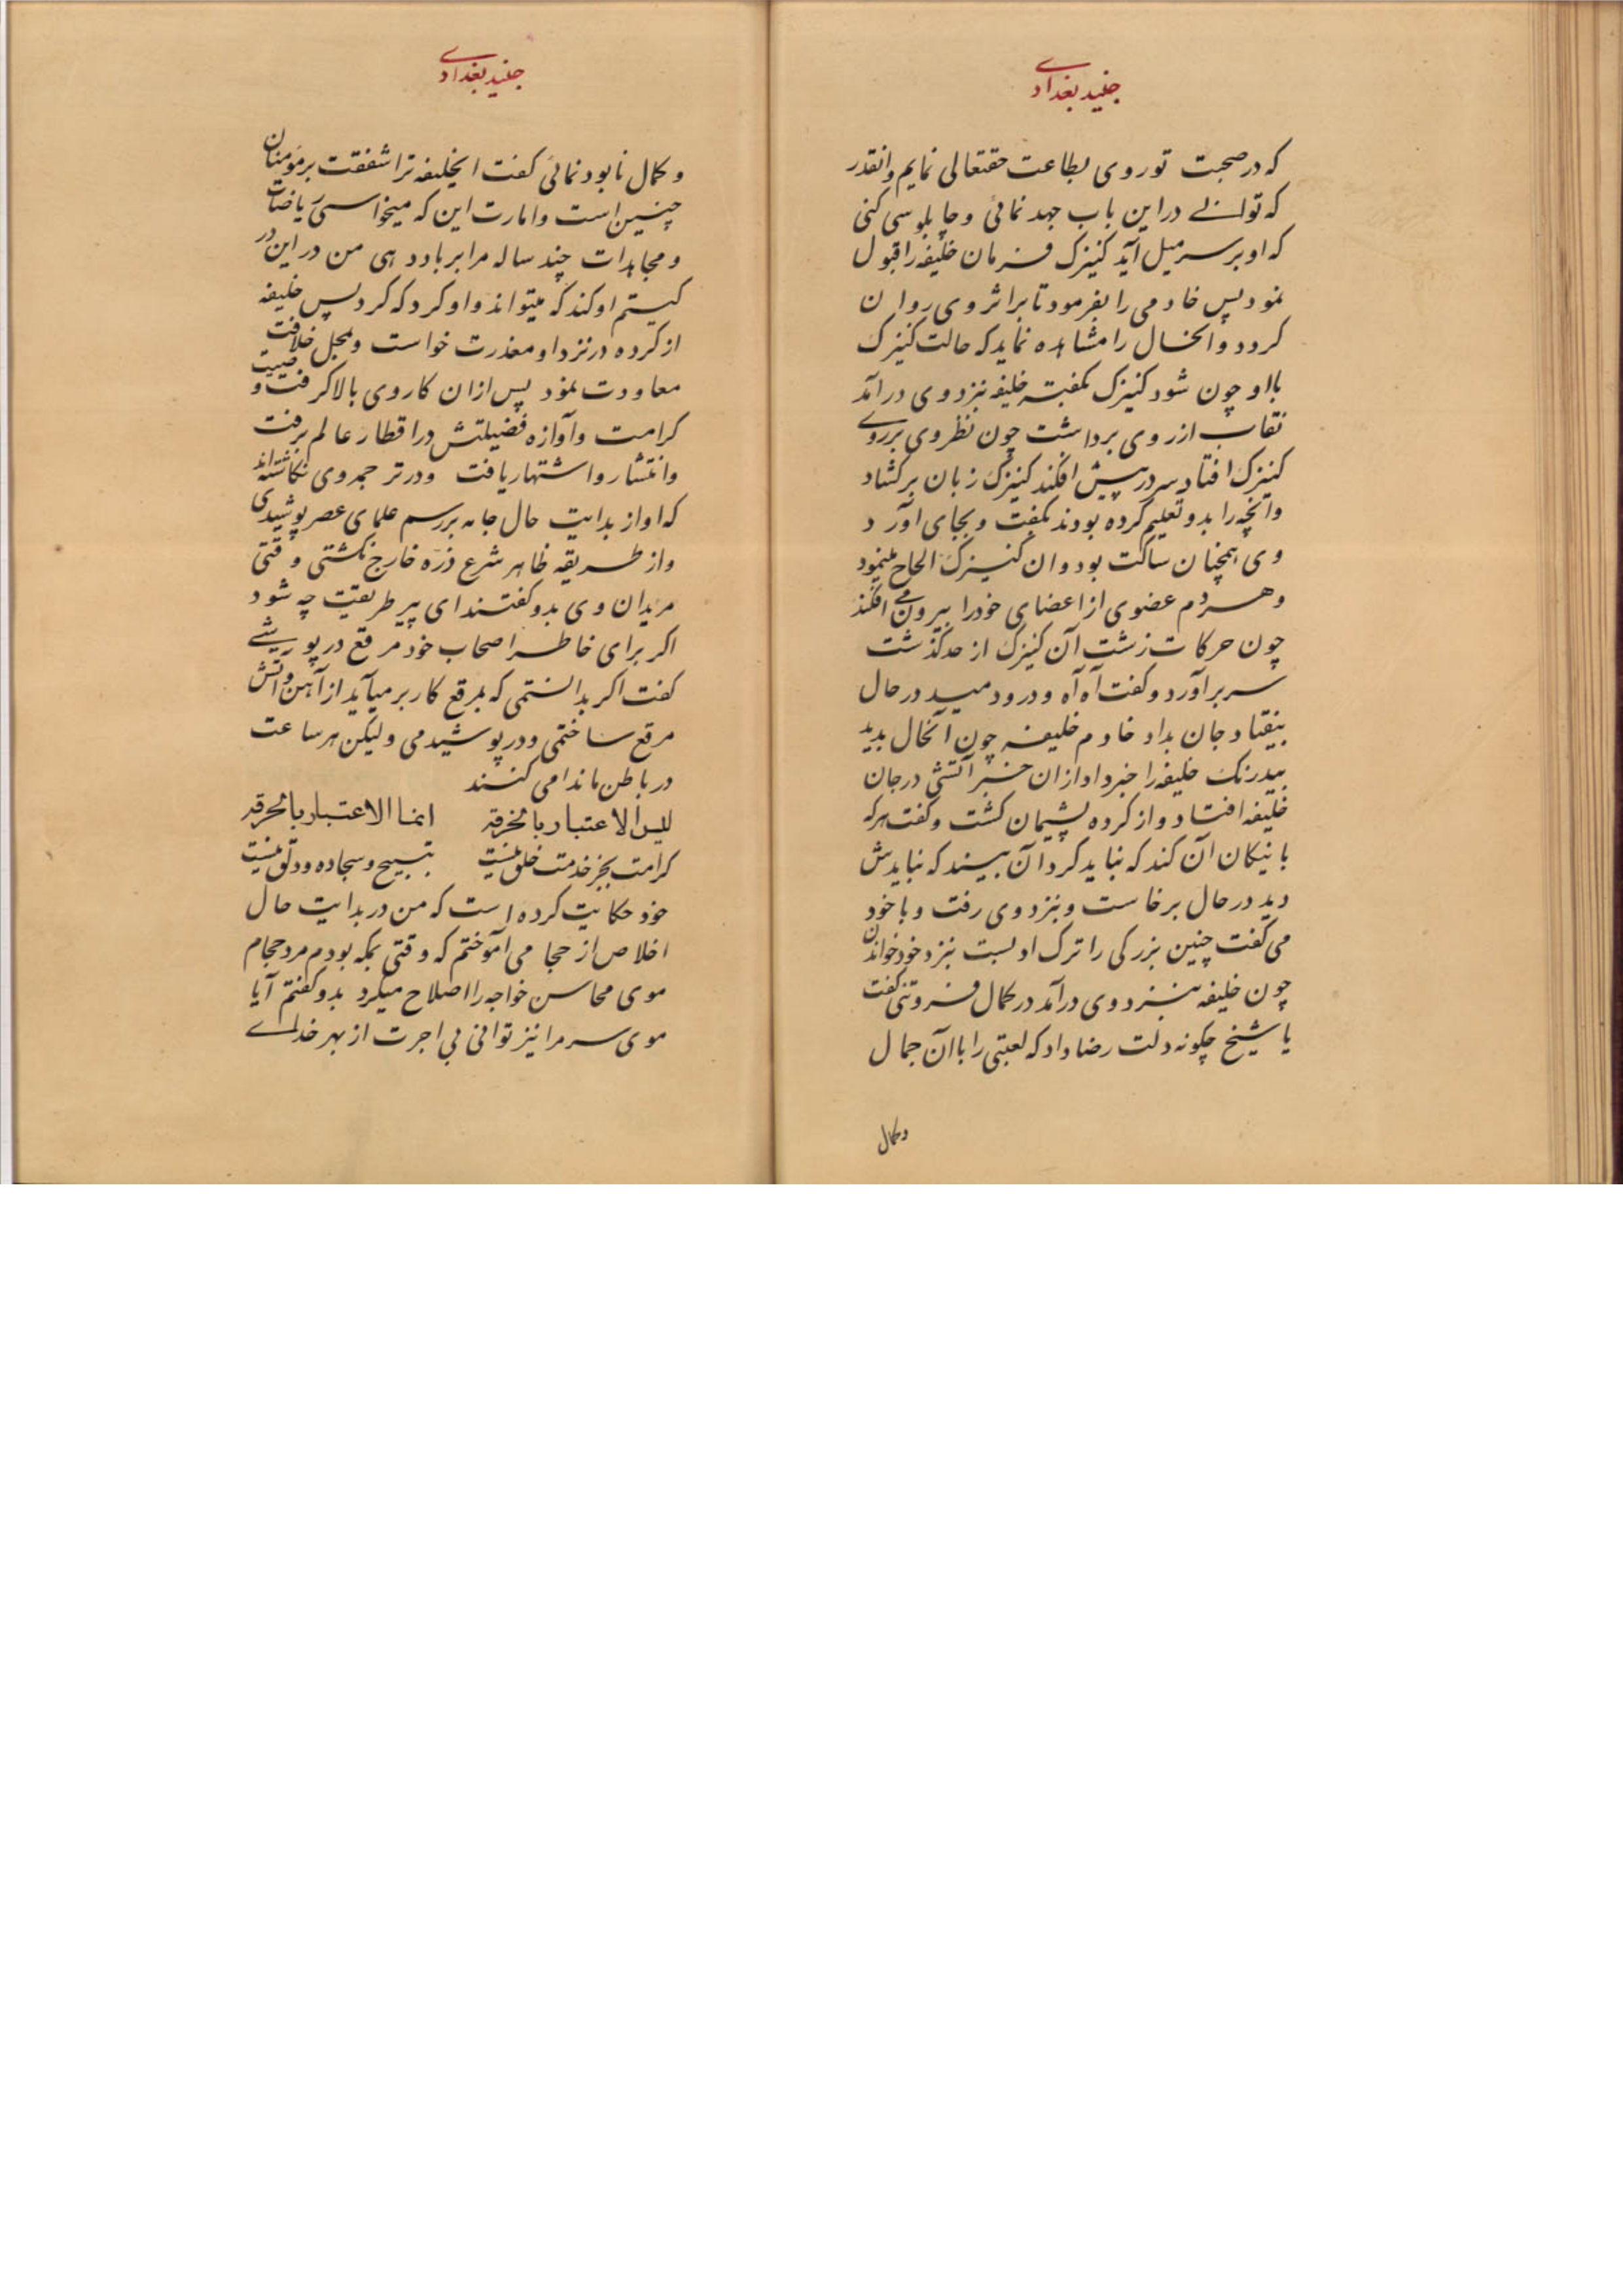 جنید بغدادی
که در صحبت تو روی بطاعت حقتعالی نمایم وانقدر
که توانی در این باب جهد نمائی و چاپلوسی کنی
که او بر سر میل آید کنیزک فرمان خلیفه را قبول
نمود پس خادمی را بفرمود تا براثر وی روان
کردد وانحال را مشاهده نماید که حالت کنیزک
با او چون شود کنیزک بکفته خلیفه نزد وی درآمد
نقاب از روی برداشت چون نظر وی برروی
کنیزک افتاد سر در پیش افکند کنیزک زبان برکشاد
وانچه را بدو تعلیم کرده بودند بکفت و بجای آورد
وی همچنان ساکت بود وان کنیزک الحاح مینمود
وهردم عضوی از اعضای خود را بیرون می افکند
چون حرکات زشت آن کنیزک از حد کذشت
سر برآورد و کفت آه آه و درود مید در حال
بیفتاد جان بداد خادم خلیفه چون آنحال بدید
بیدرنک خلیفه را خبر داد ازان خبر آتشی در جان
خلیفه افتاد و از کرده پشیمان کشت و کفت هرکه
با نیکان آن کند که نباید کرد آن بیند که نبایدش
دید در حال برخاست و بنزد وی رفت و با خود
می کفت چنین بزرکی را ترک ادبست نزد خود خواندن
چون خلیفه بنزد وی درآمد در کمال فروتنی کفت
یا شیخ چکونه دلت رضا داد که لعبتی را با آن جمال
وکمال
جنید بغدادی
و کمال نابود نمائی کفت ایخلیفه ترا شفقت بر مؤمنان
چنین است وامارت این که میخواستی ریاضات
و مجاهدات چند ساله مرا برباد دهی من در این در
کیستم او کند که میتواند و او کرد که کرد پس خلیفه
از کرده در نزد او معذرت خواست و بمحل خلافت
معاودت نمود پس ازان کار وی بالا کرفت و صیت
کرامت وآوازه فضیلتش در اقطار عالم برفت
وانتشار واشتهار یافت و در ترجمه وی نکاشته‌اند
که او از بدایت حال جامه بر رسم علمای عصر پوشیدی
واز طریقه ظاهر شرع ذره خارج نکشتی و قتی
مریدان وی بدو کفتند ای پیر طریقت چه شود
اکر برای خاطر اصحاب خود مرقع در پوشی
کفت اکر بدانستمی که بمرقع کار بر میآید از آهن وآتش
مرقع ساختمی و در پوشیدمی ولیکن هر ساعت
در باطن ما ندا می کنند
لیس الاعتبار بالخرقه انما الاعتبار بالحرقه
کرامت بجز خدمت خلق نیست بتسبیح و سجاده و دلق نیست
خود حکایت کرده است که من در بدایت حال
اخلاص از حجامی آموختم که وقتی بمکه بودم مرد حجام
موی محاسن خواجه را اصلاح میکرد بدو کفتم آیا
موی سر مرا نیز توانی بی اجرت از بهر خدای